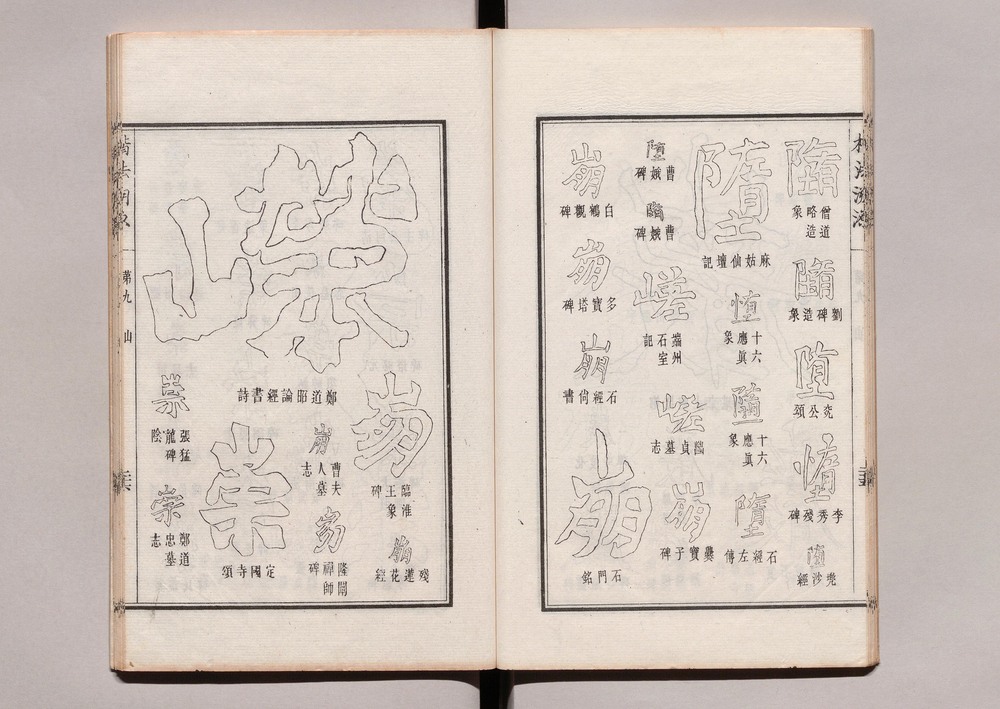 楷法溯源
僧道略造象
劉碑造象
墮
兗公頌
李秀殘碑
兜沙經
墮
麻姑仙壇記
十六應眞象
十六應眞象
石經左傳
墮
曹娥碑
曹娥碑
嵯
端州石室記
嵯
貞墓志
崩
爨寶子碑
崩
白鶴觀碑
崩
多寶塔碑
崩
石經尚書
崩
石門銘
崩
臨淮王象碑
崩
殘蓮花經
鄭道昭論經書詩
崩
曹夫人墓志
隆闡禪師碑
定國寺頌
張猛龍碑陰
鄭道忠墓志
楷法溯源
第九 山